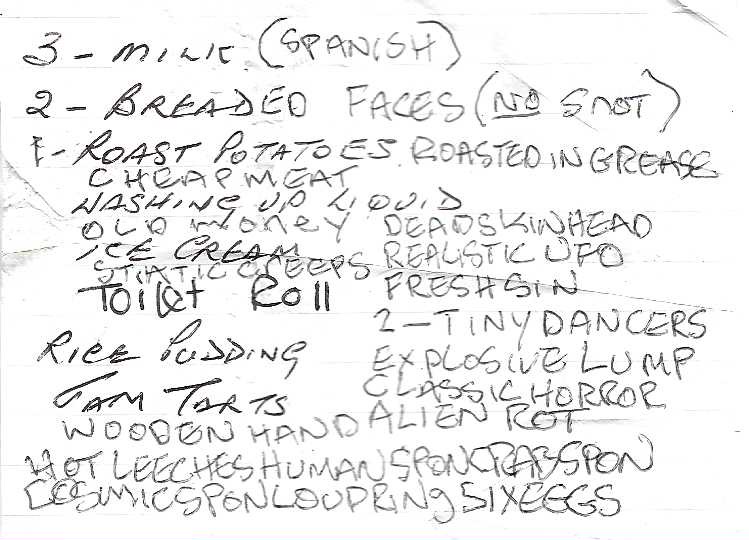 3 - MILK (SPANISH)
2 - BREADED FACES (NO SNOT)
1 - ROAST POTATOES ROASTED IN GREASE
CHEAP MEAT
WASHING UP LIQUID
OLD MONEY DEADSKINHEAD
ICE CREAM REALISTIC UFO
STATIC CREEPS FRESH SIN
Toilet Roll
2 - TINY DANCERS
RICE PUDDING EXPLOSIVE LUMP
JAM TARTS CLASSIC HORROR
WOODEN HAND ALIEN ROT
HOT LEECHES HUMAN SPON CRAB SPON
COSMIC SPON LOUD RING SIX EGGS